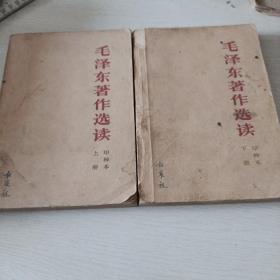 毛泽东著作选读
甲种本
上册
毛泽东著作选读
甲种本
下册